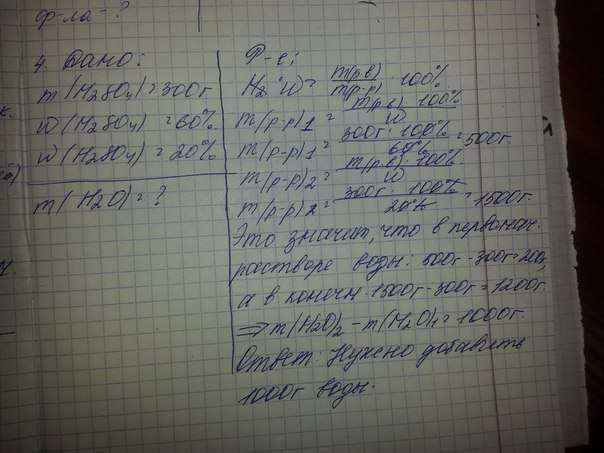 ф-ла - ?
4. Дано:
m(H2SO4) = 300г
ω(H2SO4) = 60%
ω(H2SO4) = 20%
m(H2O) = ?
Р-е:
ω = m(р.в) / m(р-р) · 100%
m(р-р)1 = m(р.в) · 100% / ω
m(р-р)1 = 300г · 100% / 60% = 500г.
m(р-р)2 = m(р.в) · 100% / ω
m(р-р)2 = 300г · 100% / 20% = 1500г.
Это значит, что в первонач.
растворе воды: 500г - 300г = 200г,
а в конечн. 1500г - 300г = 1200г
⇒ m(H2O)2 - m(H2O)1 = 1000г.
Ответ: Нужно добавить
1000г воды.